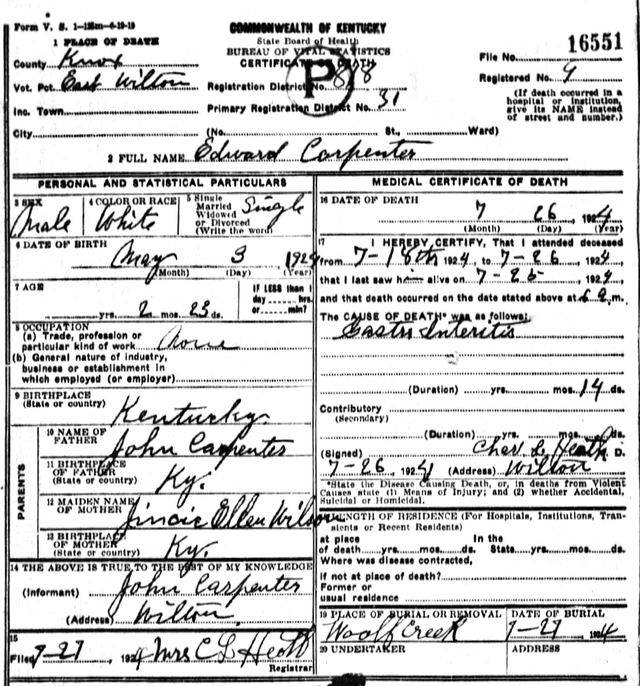 Form V. S. 1-125m-6-19-19
COMMONWEALTH OF KENTUCKY
State Board of Health
BUREAU OF VITAL STATISTICS
CERTIFICATE OF DEATH
P
16551
File No.
1 PLACE OF DEATH
County Knox
Vot. Pct. East Wilton
Registration District No. 818
Registered No. 9
Inc. Town
Primary Registration District No. 31
(If death occurred in a
hospital or institution,
give its NAME instead
of street and number.)
City (No. St., Ward)
2 FULL NAME Edward Carpenter
PERSONAL AND STATISTICAL PARTICULARS
3 SEX
Male
4 COLOR OR RACE
White
5 Single
Married
Widowed
or Divorced
(Write the word)
Single
6 DATE OF BIRTH
May 3 1924
(Month) (Day) (Year)
7 AGE
yrs. 2 mos. 23 ds.
IF LESS than 1
day hrs.
or min?
8 OCCUPATION
(a) Trade, profession or
particular kind of work
(b) General nature of industry,
business or establishment in
which employed (or employer)
9 BIRTHPLACE
(State or country)
Kentucky
PARENTS
10 NAME OF
FATHER
John Carpenter
11 BIRTHPLACE
OF FATHER
(State or country)
Ky.
12 MAIDEN NAME
OF MOTHER
Ellen Wilson
13 BIRTHPLACE
OF MOTHER
(State or country)
Ky.
14 THE ABOVE IS TRUE TO THE BEST OF MY KNOWLEDGE
(Informant) John Carpenter
(Address) Wilton
15
Filed 7-27 1924 Mrs C L Heath
Registrar
MEDICAL CERTIFICATE OF DEATH
16 DATE OF DEATH
7 26, 1924
(Month) (Day) (Year)
17 I HEREBY CERTIFY, That I attended deceased
from 7-18th 1924, to 7-26, 1924
that I last saw h alive on 7-25, 1924,
and that death occurred on the date stated above at m.
The CAUSE OF DEATH* was as follows:
Gastro Interitis
(Duration) yrs. mos. 14 ds.
Contributory
(Secondary)
(Duration) yrs. mos. ds.
(Signed) Chas. L. Heath M. D.
7-26, 1924 (Address) Wilton
*State the Disease Causing Death, or, in deaths from Violent
Causes state (1) Means of Injury; and (2) whether Accidental,
Suicidal or Homicidal.
18 LENGTH OF RESIDENCE (For Hospitals, Institutions, Tran-
sients or Recent Residents)
at place In the
of death yrs. mos. ds. State yrs. mos. ds.
Where was disease contracted,
if not at place of death?
Former or
usual residence
19 PLACE OF BURIAL OR REMOVAL
Woolf Creek
DATE OF BURIAL
7-27 1924
20 UNDERTAKER
ADDRESS